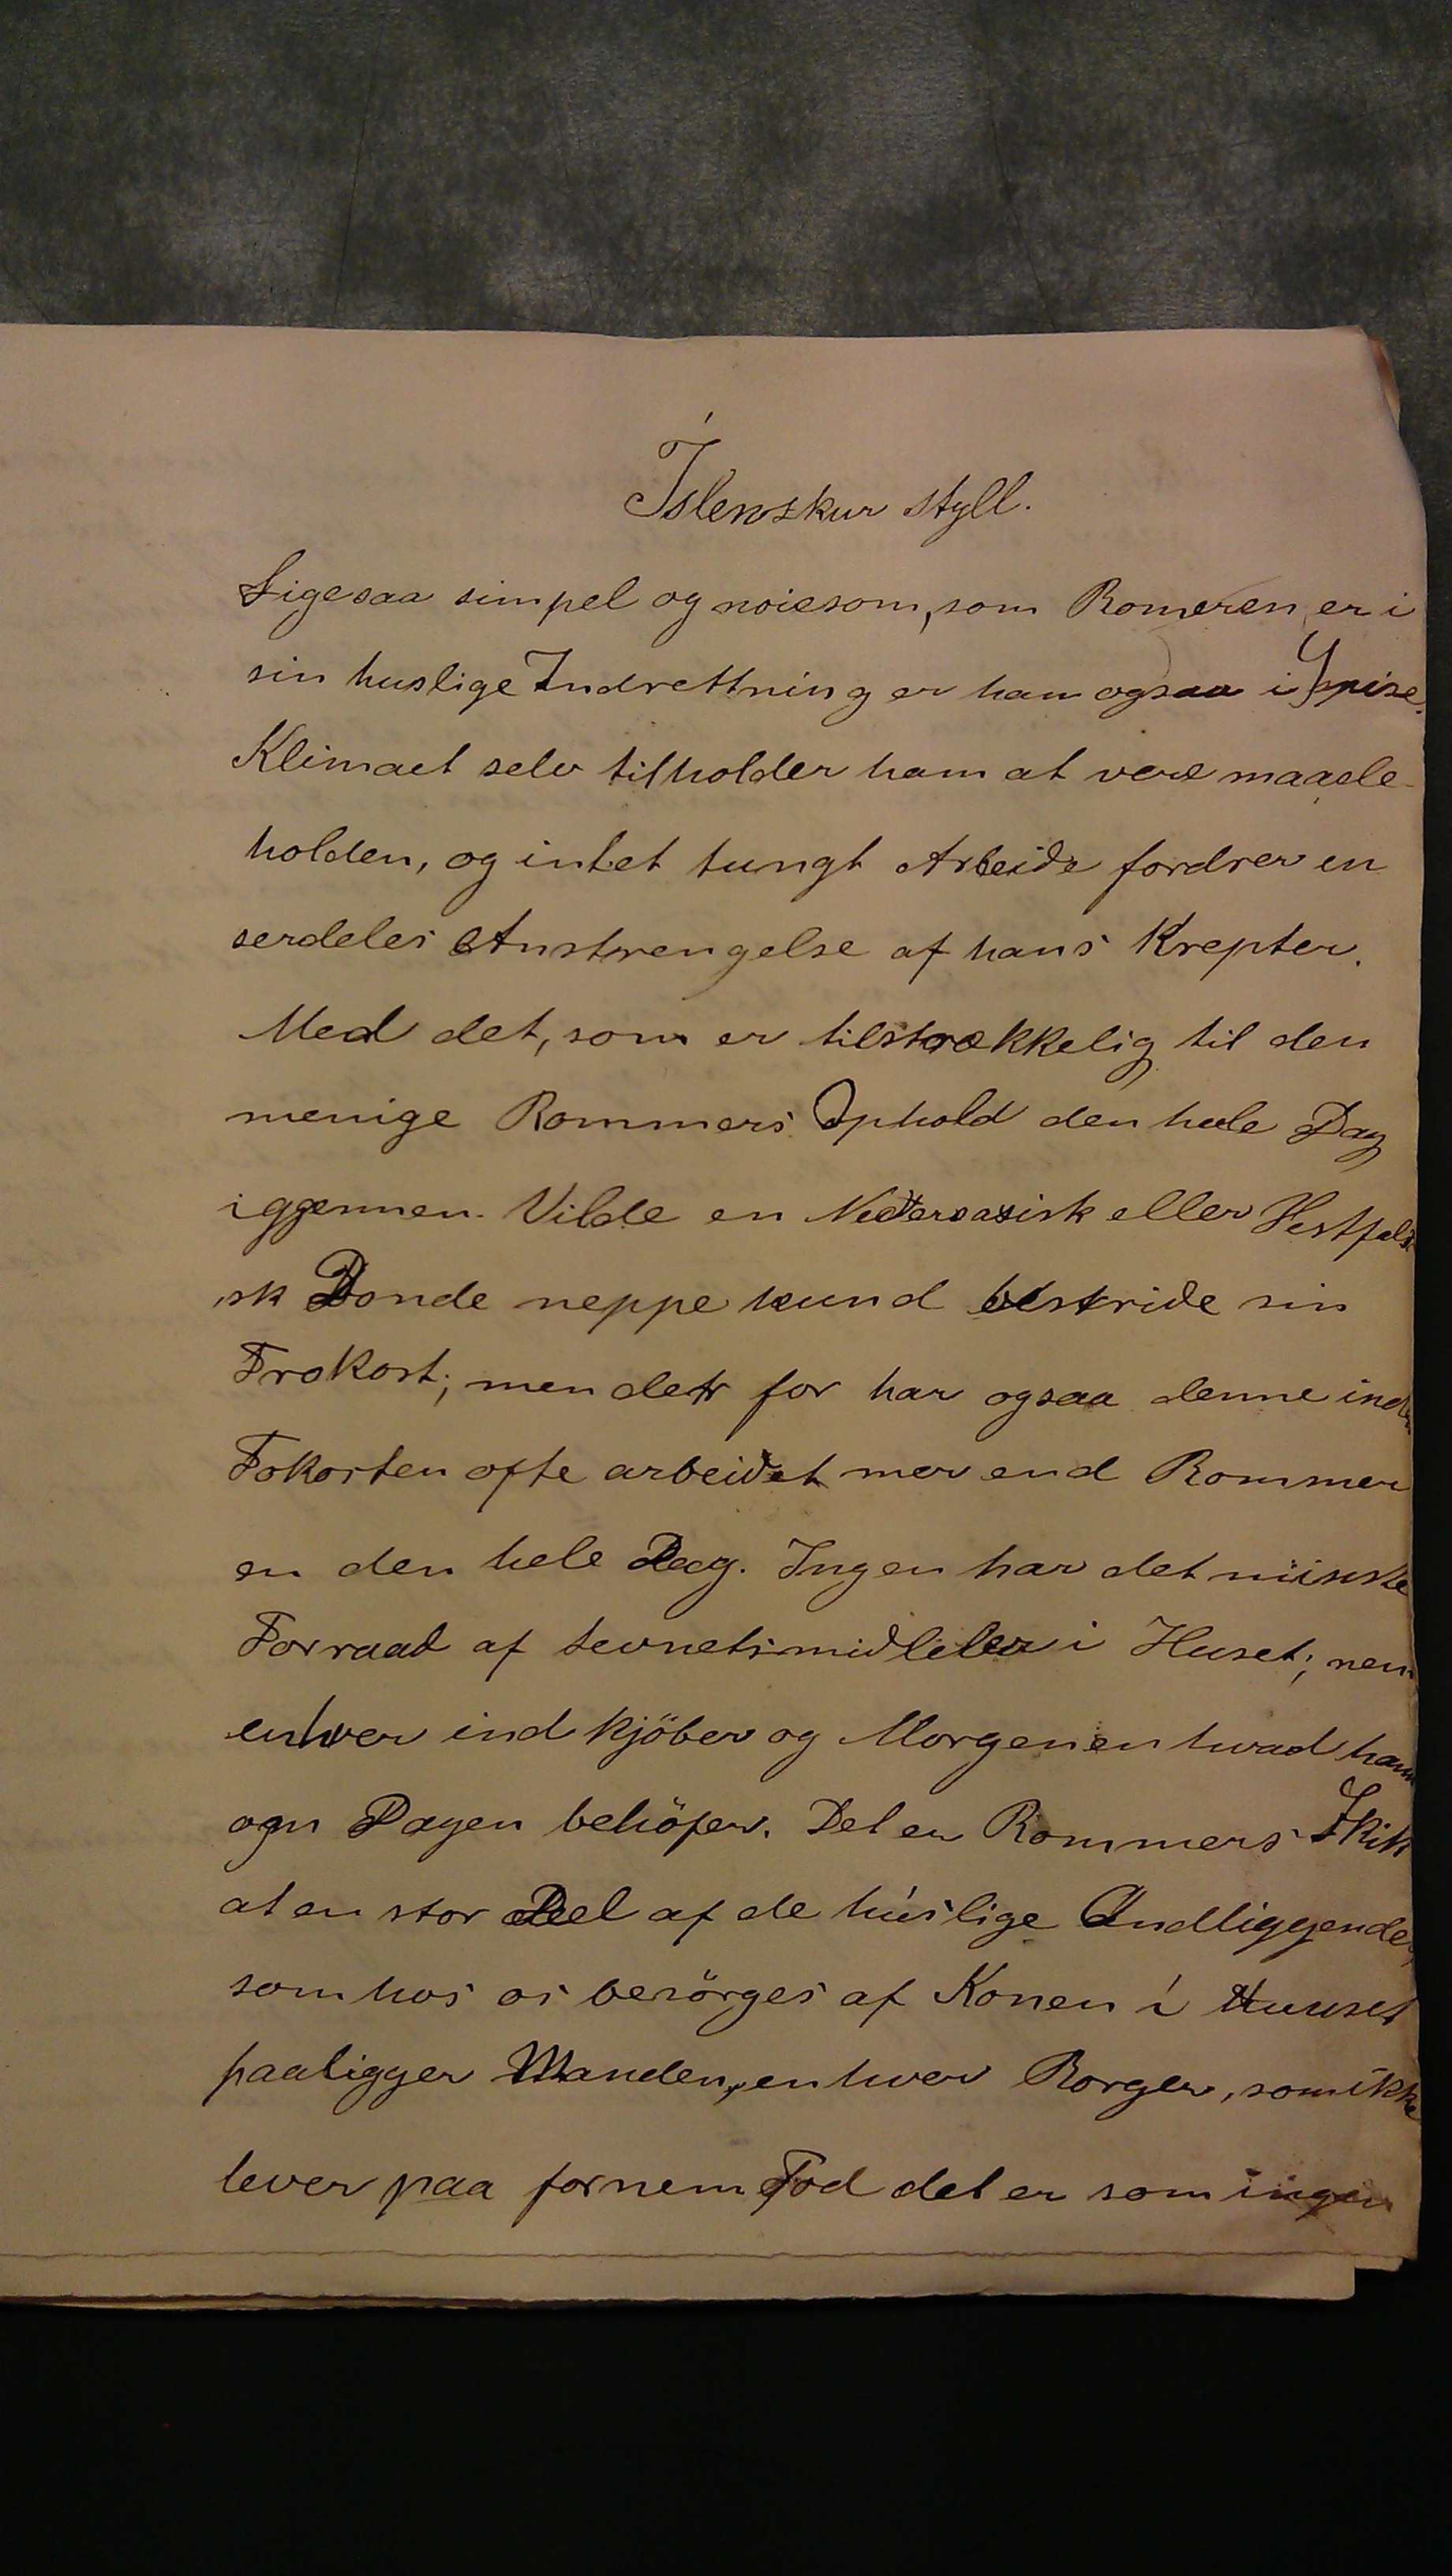 Íslenskur styll.
Ligesaa simpel og noiesom, som Romeren er i
sin huslige Indrettning er han ogsaa i Spise.
Klimaet selv tilholder ham at vere maade-
holden, og intet tungt Arbeide fordrer en
serdeles Anstrengelse af hans Krepter.
Med det, som er tilstrækkelig til den
menige Rommers Ophold den hele Dag
iggennen. Vilde en Nedersasisk eller Vestfals
sk Bonde neppe kund bestride sin
Frokost; men detr for har ogsaa denne inden
Fokosten ofte arbeidet mer end Rommer
en den hele Dag. Ingen har det minste
Forraad af levnetsmidleler i Huset; nem
enhver ind kjöber og Morgenen hvad han
ogn Dagen behöfer. Det er Rommers Skik
at en stor Deel af de húslige Andliggender,
som hos os besörges af Konen i Huuset
paaligger Manden, en hver Borger, som ikke
lever paa fornem Fod det er som ingen